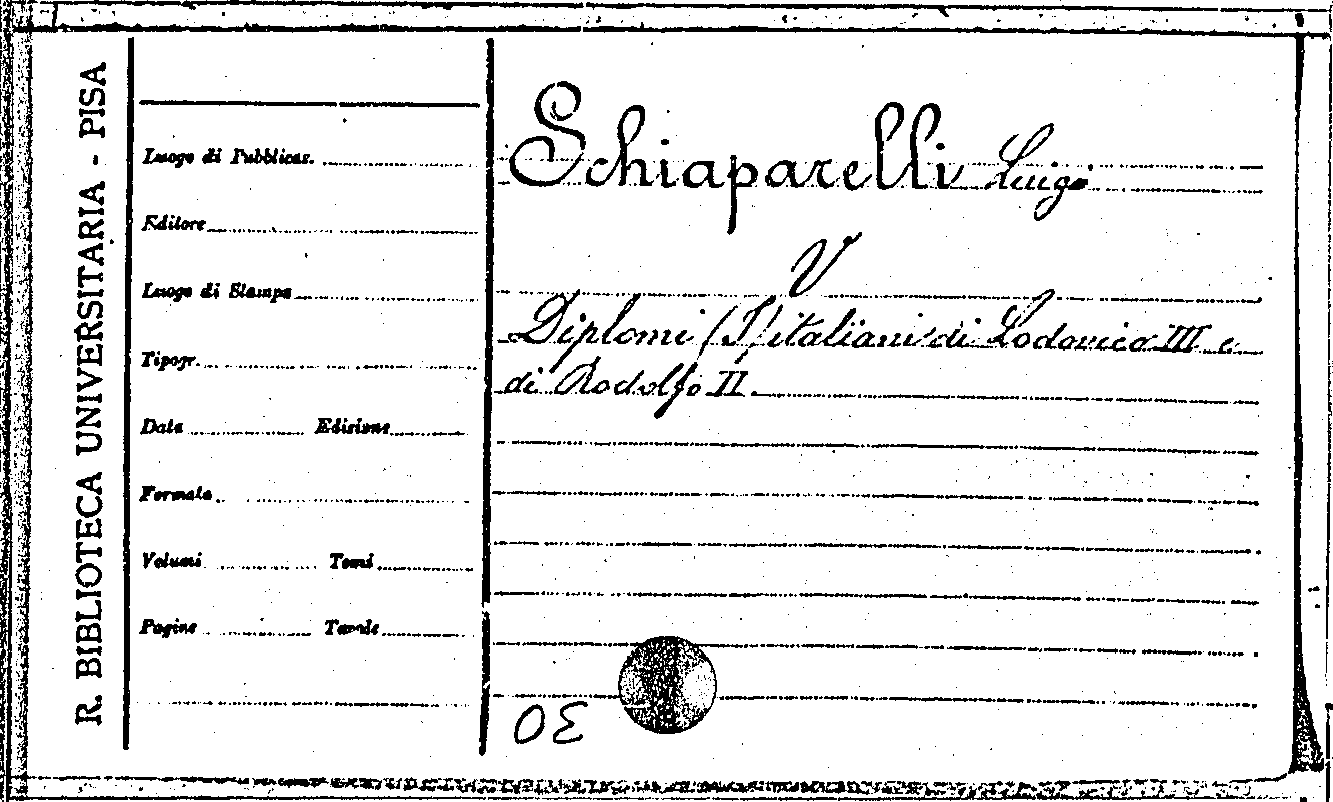 R. BIBLIOTECA UNIVERSITARIA - PISA
Luogo di Pubblicaz.
Editore
Luogo di Stampa
Tipogr.
Data Edizione
Formato
Volumi Tomi
Pagine Tavole
Schiaparelli Luigi
V
Diplomi (I) italiani di Lodovico III e
di Rodolfo II.